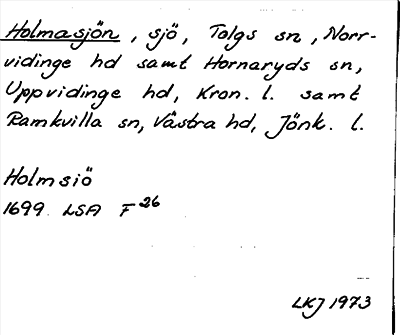 Holmasjön, sjö, Tolgs sn, Norr-
vidinge hd samt Hornaryds sn,
Uppvidinge hd, Kron. l. samt
Ramkvilla sn, Västra hd, Jönk. l.
Holmsiö
1699 LSA F 26
LKJ 1973